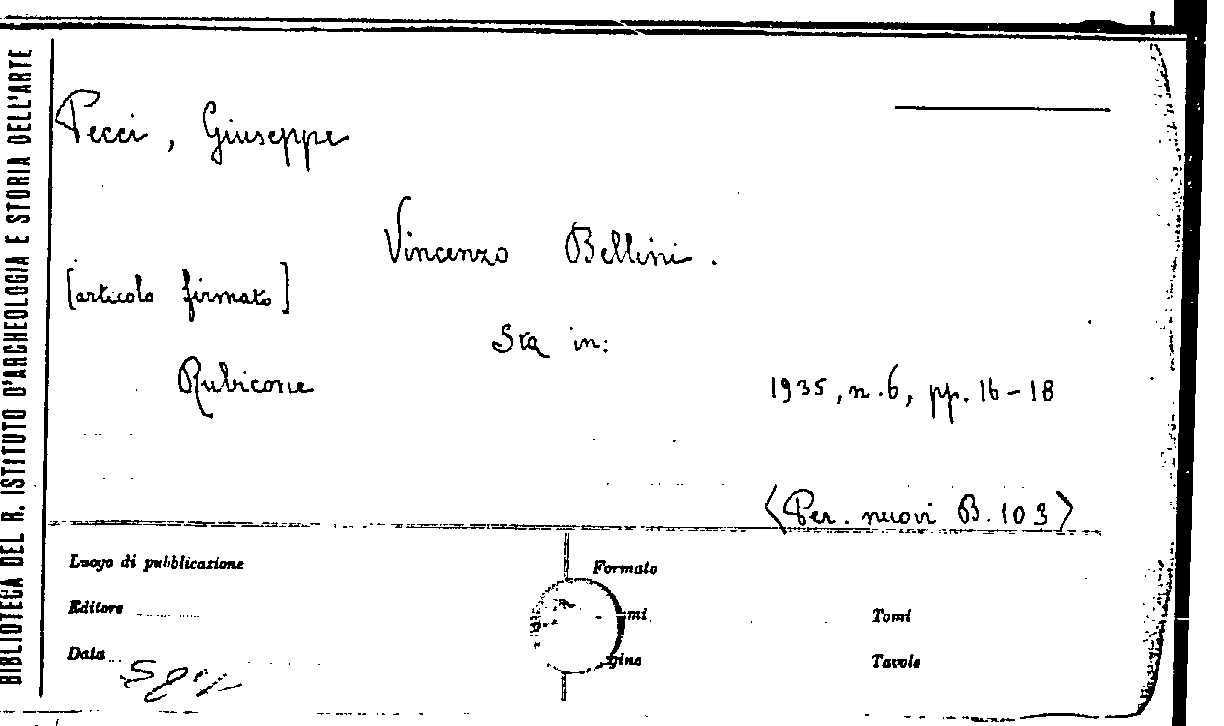 BIBLIOTECA DEL R. ISTITUTO D'ARCHEOLOGIA E STORIA DELL'ARTE
Pecci, Giuseppe
Vincenzo Bellini.
[articolo firmato]
Sta in:
Rubicone
1935, n.6, pp. 16-18
<Per. nuovi B. 103>
Luogo di pubblicazione
Formato
Editore
Tomi
Data
Tavole